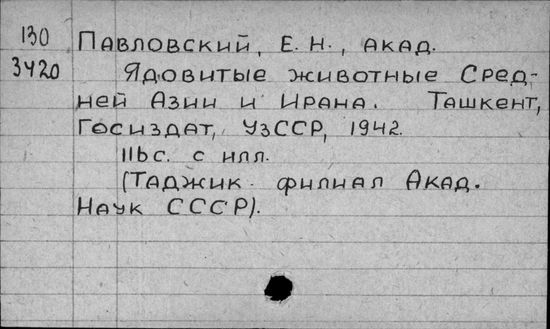 130 Павловский, Е. Н., акад.
3420 Ядовитые животные Сред-
ней Азии и Ирана. Ташкент,
Госиздат, УзССР, 1942.
116с. с илл.
(Таджик. филиал Акад.
Наук СССР).